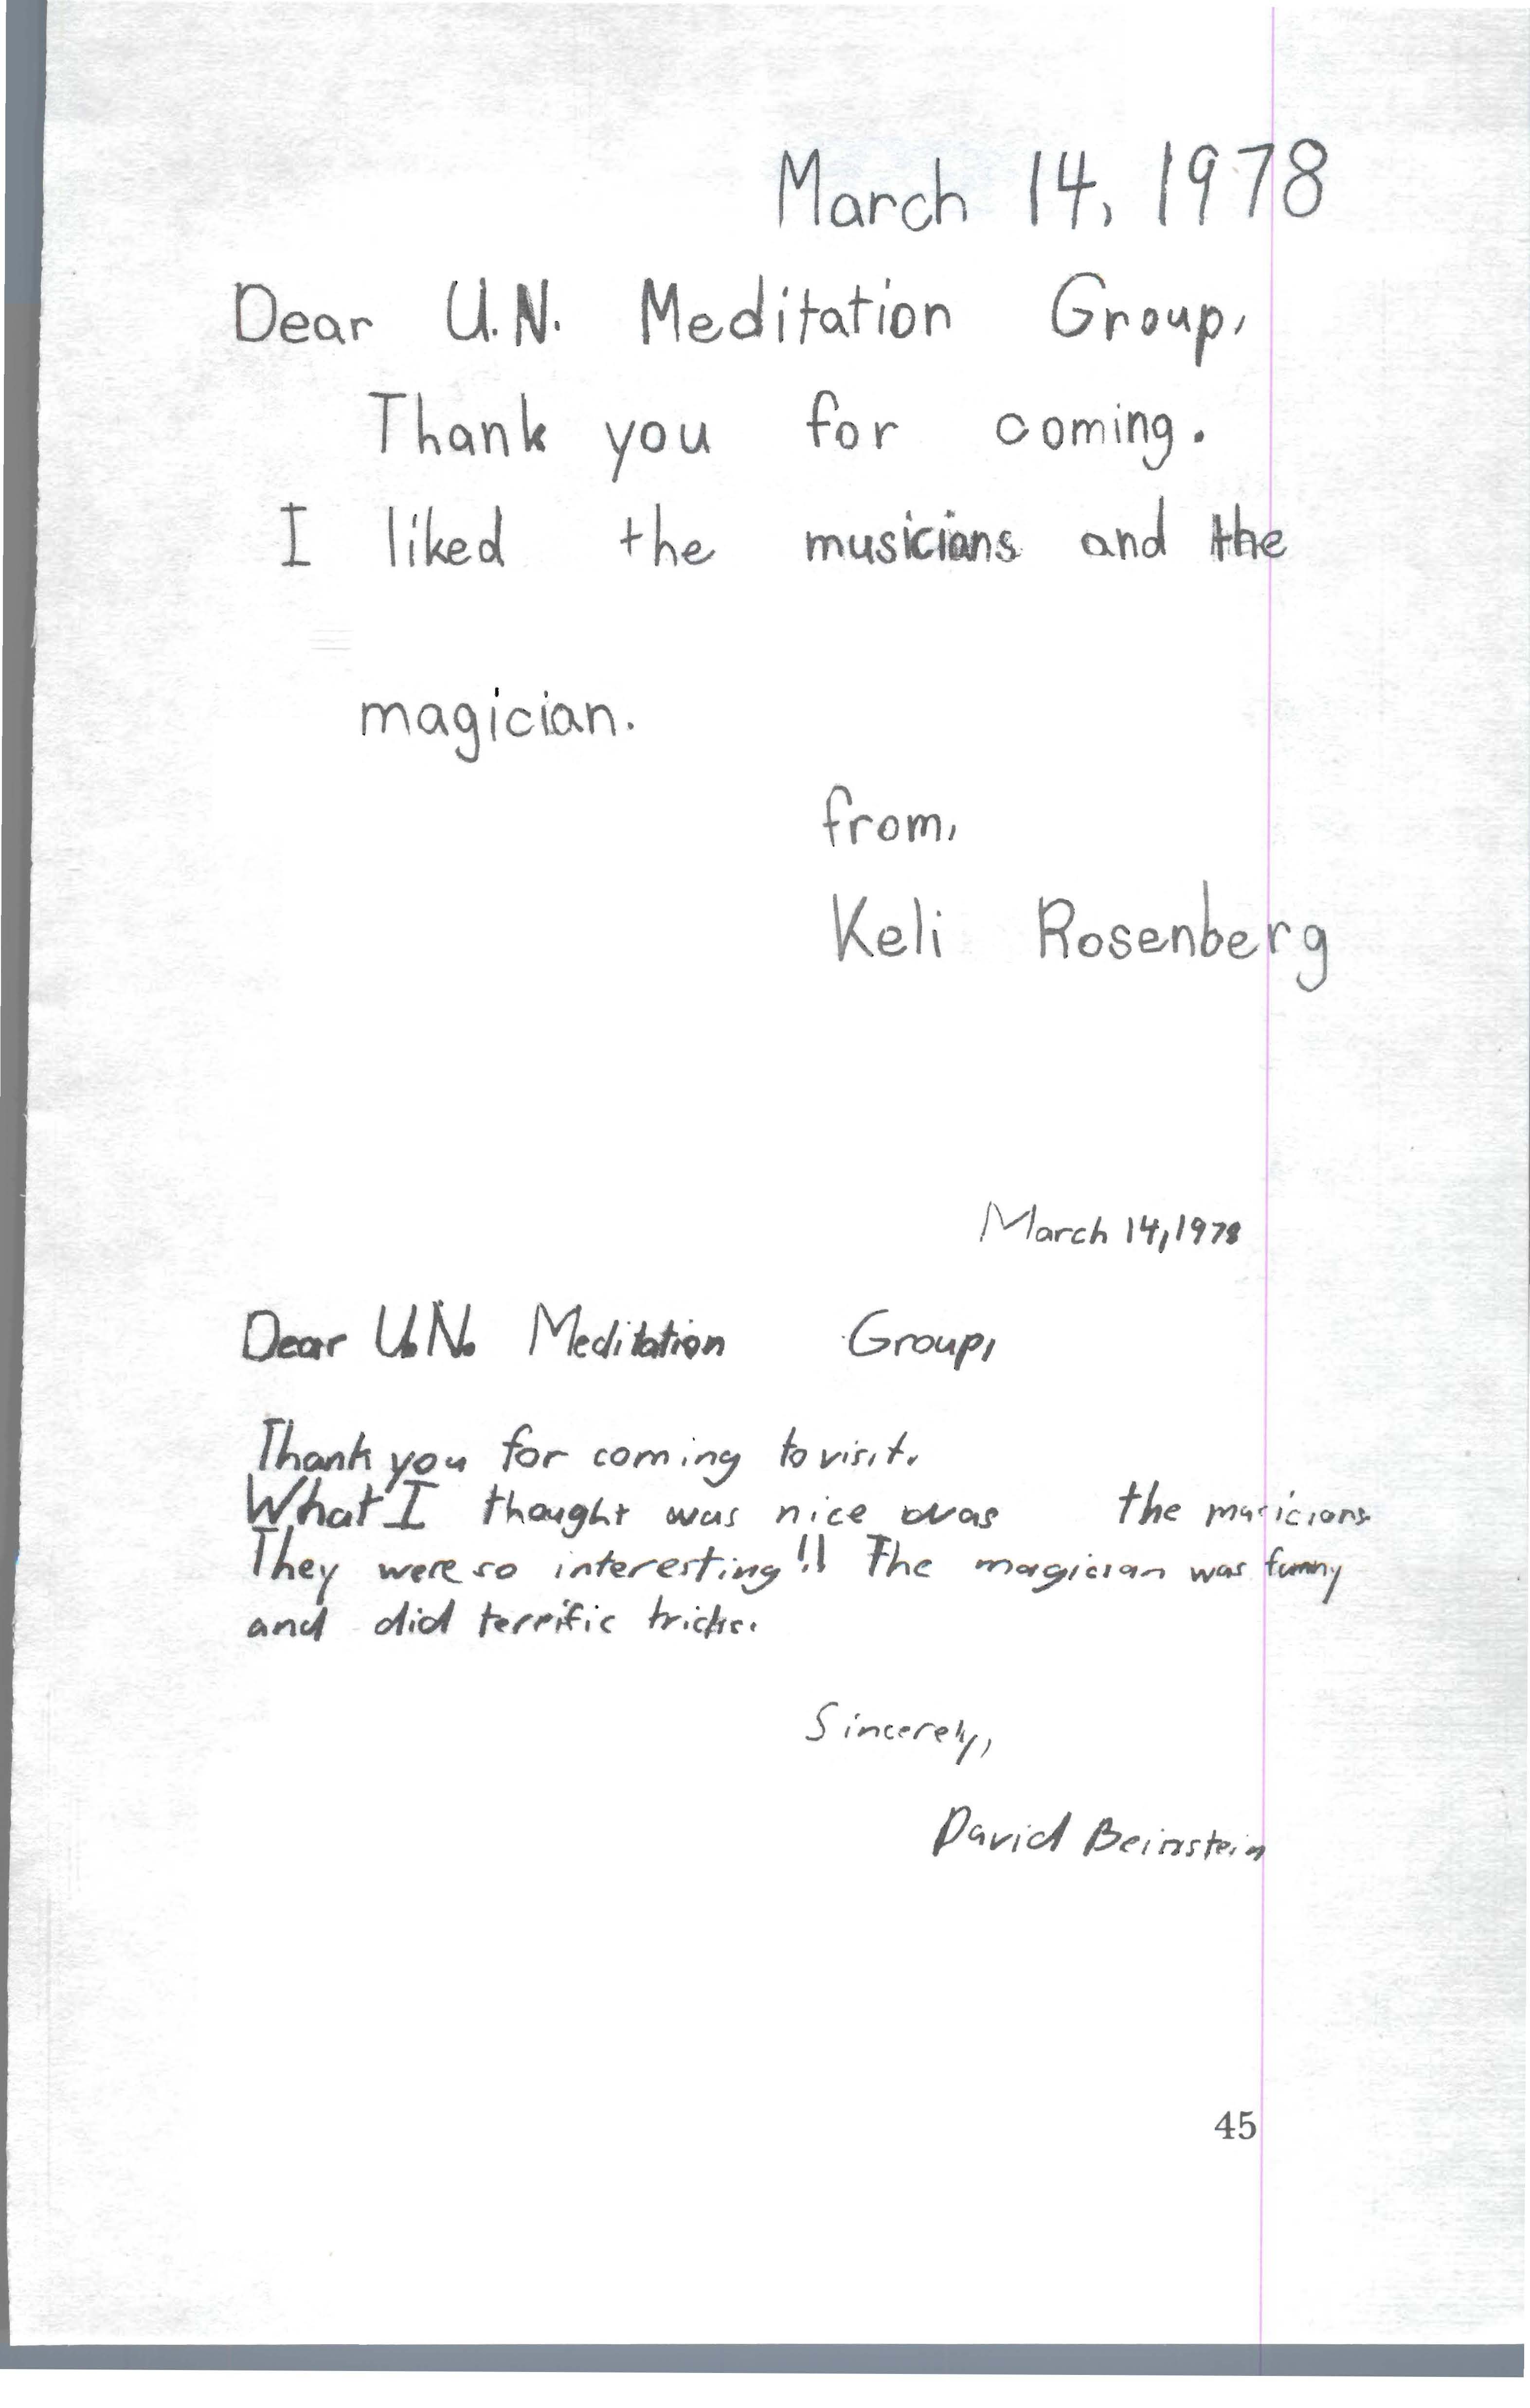 March 14, 1978
Dear U.N. Meditation Group,
Thank you for coming.
I liked the musicians and the
magician.
from,
Keli Rosenberg
March 14, 1978
Dear U.N. Meditation Group,
Thank you for coming to visit.
What I thought was nice was the musicians.
They were so interesting!! The magician was funny
and did terrific tricks.
Sincerely,
David Beinstein
45